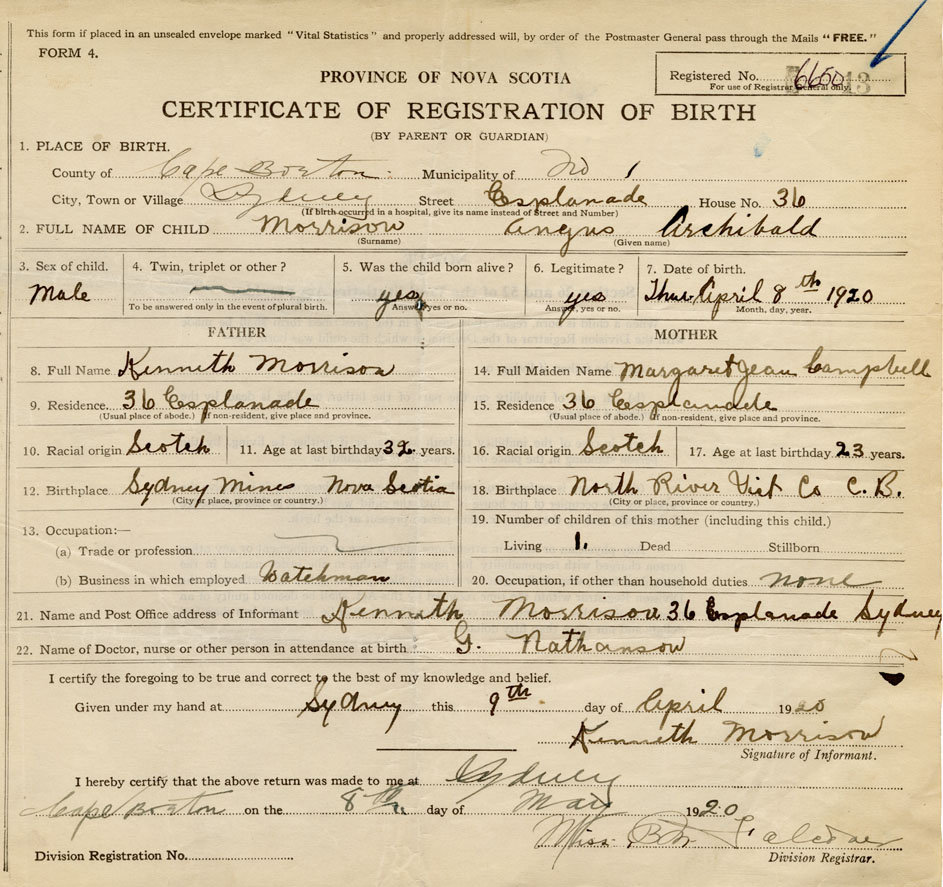 This form if placed in an unsealed envelope marked "Vital Statistics" and properly addressed will, by order of the Postmaster General pass through the Mails "FREE."
FORM 4.
PROVINCE OF NOVA SCOTIA
Registered No. 6650
For use of Registrar General only.
CERTIFICATE OF REGISTRATION OF BIRTH
(BY PARENT OR GUARDIAN)
1. PLACE OF BIRTH.
County of Cape Breton Municipality of No 1
City, Town or Village Sydney Street Esplanade House No. 36
(If birth occurred in a hospital, give its name instead of Street and Number)
2. FULL NAME OF CHILD Morrison Angus Archibald
(Surname) (Given name)
3. Sex of child. 4. Twin, triplet or other? 5. Was the child born alive? 6. Legitimate? 7. Date of birth.
Male yes yes Thur April 8th 1920
To be answered only in the event of plural birth. Answer, yes or no. Answer, yes or no. Month, day, year.
FATHER MOTHER
8. Full Name Kenneth Morrison 14. Full Maiden Name Margaret Jean Campbell
9. Residence. 36 Esplanade 15. Residence 36 Esplanade
(Usual place of abode.) If non-resident, give place and province. (Usual place of abode.) If non-resident, give place and province.
10. Racial origin Scotch 11. Age at last birthday 32 years. 16. Racial origin Scotch 17. Age at last birthday 23 years.
12. Birthplace Sydney Mines Nova Scotia 18. Birthplace North River Vict Co C. B.
(City or place, province or country.) (City or place, province or country.)
13. Occupation:— 19. Number of children of this mother (including this child.)
(a) Trade or profession Living 1. Dead Stillborn
(b) Business in which employed Watchman 20. Occupation, if other than household duties none
21. Name and Post Office address of Informant Kenneth Morrison 36 Esplanade Sydney
22. Name of Doctor, nurse or other person in attendance at birth G. Nathanson
I certify the foregoing to be true and correct to the best of my knowledge and belief.
Given under my hand at Sydney this 9th day of April 1920
Kenneth Morrison
Signature of Informant.
I hereby certify that the above return was made to me at Sydney
Cape Breton on the 8th day of May 1920
Miss
Division Registration No. Division Registrar.